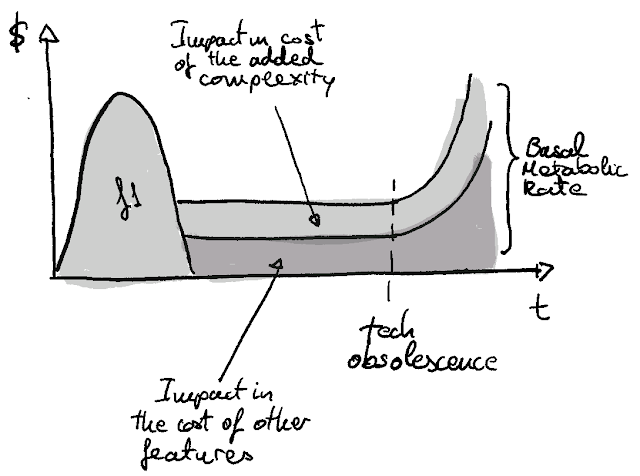 $
Impact in cost
of the added
complexity
f1
Basal
Metabolic
Rate
t
tech
obsolescence
Impact in
the cost of other
features